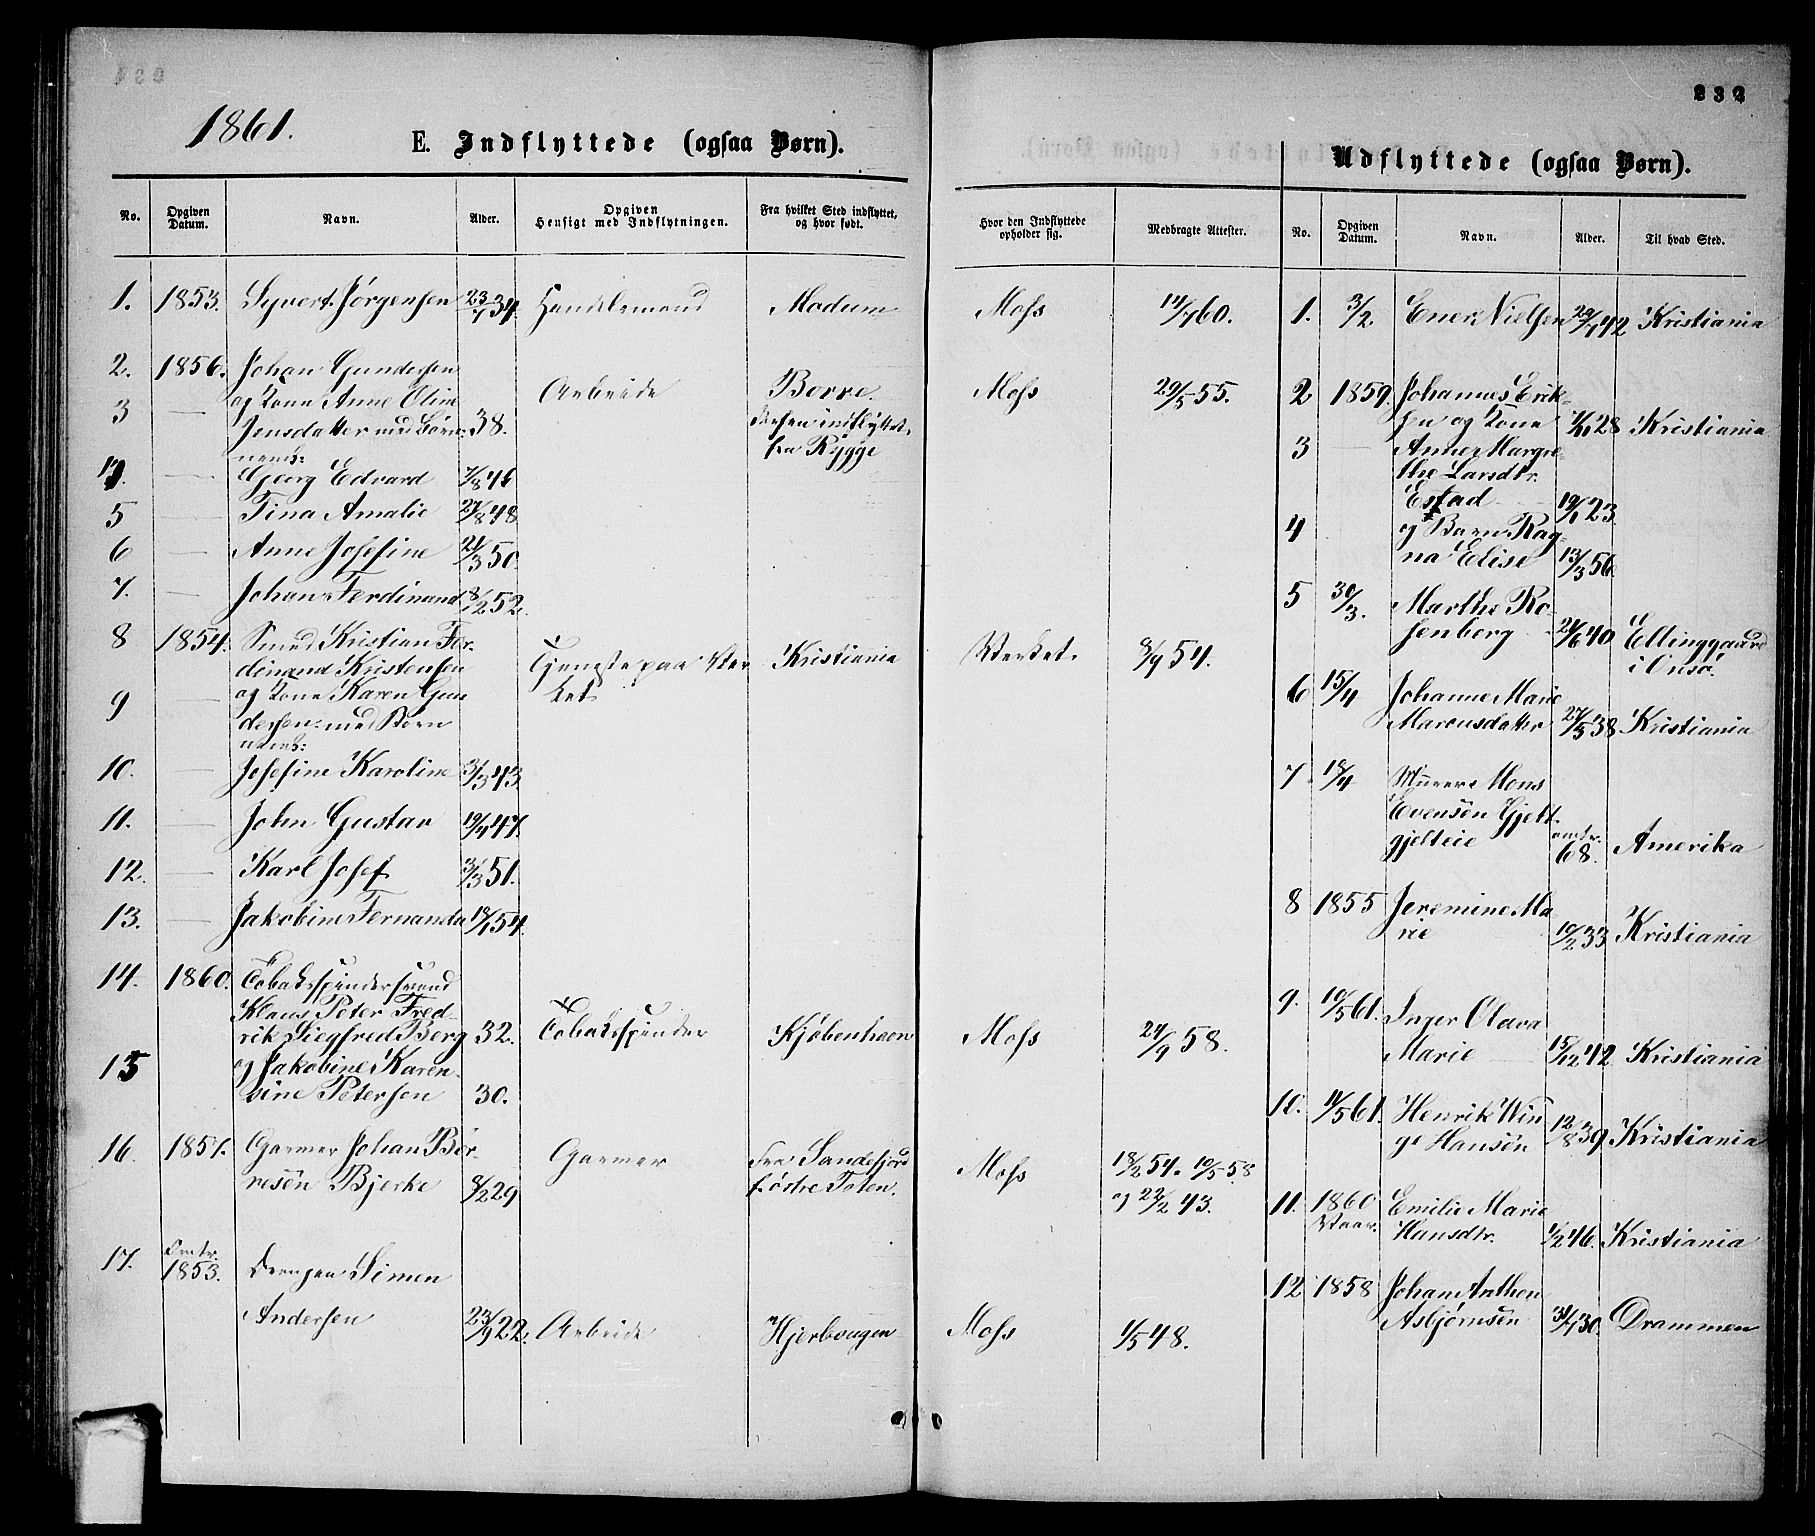 232
1861.
E. Indflyttede (ogsaa Børn).
No. Opgiven Datum. Navn. Alder. Opgiven Hensigt med Indflytningen. Fra hvilket Sted indflyttet, og hvor født. Hvor den Indflyttede opholder sig. Medbragte Attester.
1. 1853. Syvert Jørgensen 23/7 34. Handelsmand Modum Moss 14/7 60.
2. 1856. Johan Gundersen
3 — og Kone Anne Oline Arbeide Borre. Moss 29/5 55.
Jensdatter med Børn: 38. Dersen indflyttet
nemb: fra Rygge
4. — Georg Edvard 7/8 46
5 — Tina Amalie 27/8 48
6 — Anne Josefine 21/3 50.
7. — Johan Ferdinand 8/12 52.
8 1854. Smed Kristian Fer-
dinand Kristensen Tjeneste paa Ver Kristiania Værket. 8/9 54.
9 — og Kone Karen Gun ket
dersen med Børn
nemb:
10. — Josefine Karoline 31/3 43
11. — John Gustav 19/4 47.
12. — Karl Josef 31/3 51.
13. — Jakobine Fernanda 18/1 54.
14. 1860. Tobaksspindersvend
Klaus Peter Fred-
rik Siegfred Berg 32. Tobaksspinder Kjøbenhavn Moss 24/9 58.
15 og Jakobine Karen-
sine Petersen 30.
16. 1857. Garver Johan Bør- Garver Fra Sandefjord Moss 18/2 54. 10/5 58
resen Bjerke 8/2 29 f. østre Toten. og 22/2 43.
17. Omtr. 1853. Drengen Simen
Andersen 23/9 22. Arbeide Hjerbvagen Moss 1/5 48.
Udflyttede (ogsaa Børn).
No. Opgiven Datum. Navn. Alder. Til hvad Sted.
1. 3/2. Ener Nielsen 20/1 42 Kristiania
2 1859. Johannes Erik-
sen og Kone 1/11 28 Kristiania
3 — Anne Margre
the Larsdtr.
Estad 19/1 23.
4 og Barn Rag-
na Elise 13/3 56.
5 30/3. Marthe Ro-
senberg 24/6 40. Ellinggaard
i Onsø.
6 15/4 Johanne Marie
Marcusdatter 27/5 38 Kristiania
7 18/4 Murer Mons
Evensen Gjelt-
gjelteie omtr. 68. Amerika
8 1855 Jeremine Ma-
rie 10/2 33 Kristiania
9. 10/5 61. Inger Olava
Marie 15/12 42 Kristiania
10. 11/5 61. Henrik Win
ge Hansen 12/8 39 Kristiania
11. 1860 Vaar. Emilie Marie
Hansdtr. 1/2 46. Kristiania
12 1858 Johan Anthon
Asbjørnsen 31/7 30. Drammen